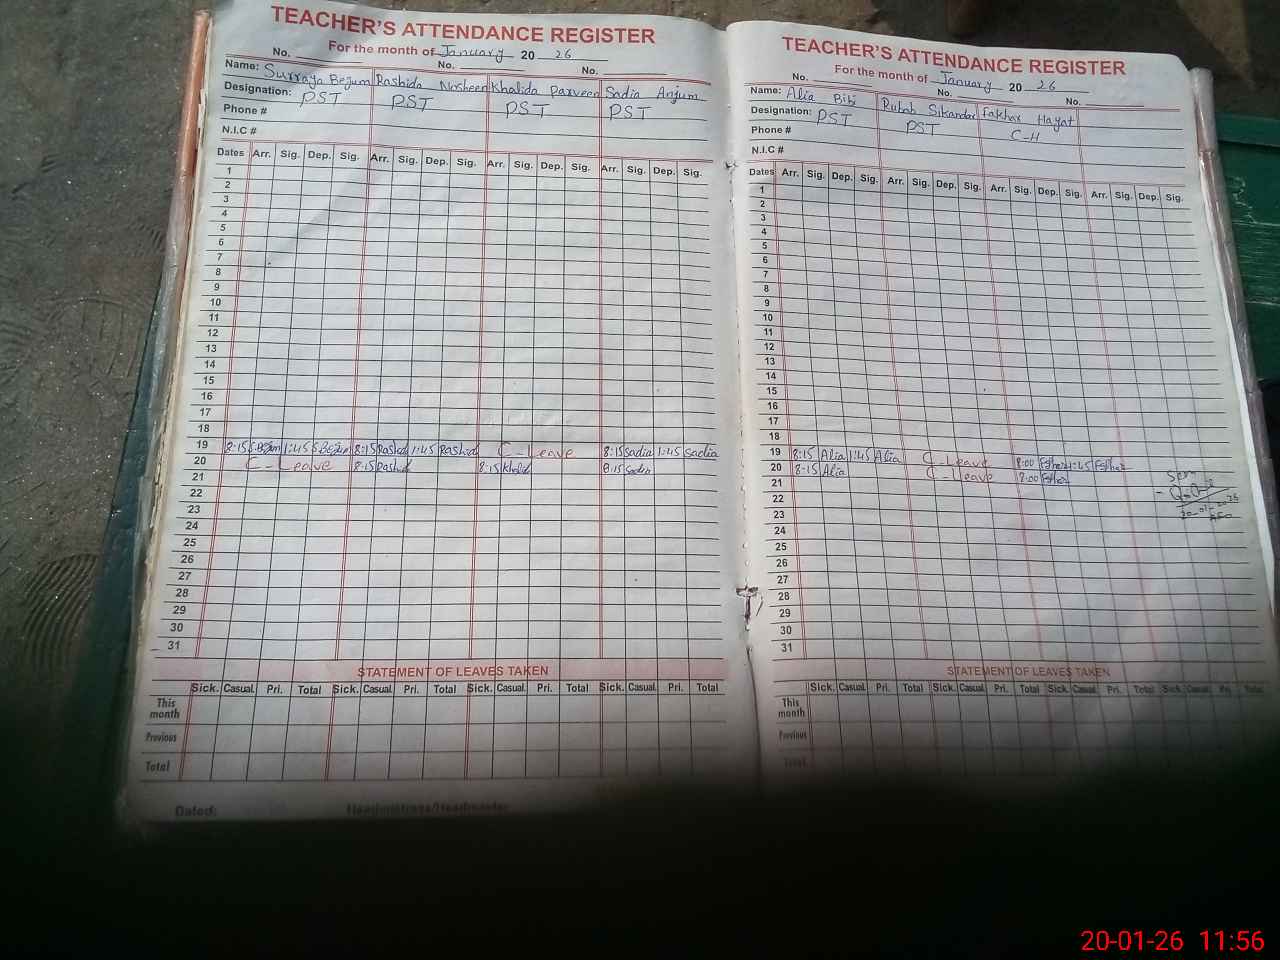 TEACHER'S ATTENDANCE REGISTER
For the month of January 20 26
No. No. No.
Name: Surraya Begum Rashida Nosheen Khalida Parveen Sadia Anjum
Designation: PST PST PST PST
Phone #
N.I.C #
Dates Arr. Sig. Dep. Sig. Arr. Sig. Dep. Sig. Arr. Sig. Dep. Sig. Arr. Sig. Dep. Sig.
1
2
3
4
5
6
7
8
9
10
11
12
13
14
15
16
17
18
19 8:15 S.Begum 1:45 S.Begum 8:15 Rashid 1:45 Rashid C-Leave 8:15 Sadia 1:45 Sadia
20 C-Leave 8:15 Rashid 8:15 Khalid 8:15 Sadia
21
22
23
24
25
26
27
28
29
30
31
STATEMENT OF LEAVES TAKEN
Sick. Casual Pri. Total Sick. Casual Pri. Total Sick. Casual Pri. Total Sick. Casual Pri. Total
This month
Previous
Total
Dated: Headmistress/Headmaster
TEACHER'S ATTENDANCE REGISTER
For the month of January 20 26
No. No. No.
Name: Alia Bibi Rubab Sikandar Fakhar Hayat
Designation: PST PST C-H
Phone #
N.I.C #
Dates Arr. Sig. Dep. Sig. Arr. Sig. Dep. Sig. Arr. Sig. Dep. Sig. Arr. Sig. Dep. Sig.
1
2
3
4
5
6
7
8
9
10
11
12
13
14
15
16
17
18
19 8:15 Alia 1:45 Alia C-Leave 8:00 1:45
20 8:15 Alia C-Leave 8:00
21
22
23
24
25
26
27
28
29
30
31
20-01-2026
STATEMENT OF LEAVES TAKEN
Sick. Casual Pri. Total Sick. Casual Pri. Total Sick. Casual Pri. Total Sick. Casual Pri. Total
This month
Previous
Total
20-01-26 11:56